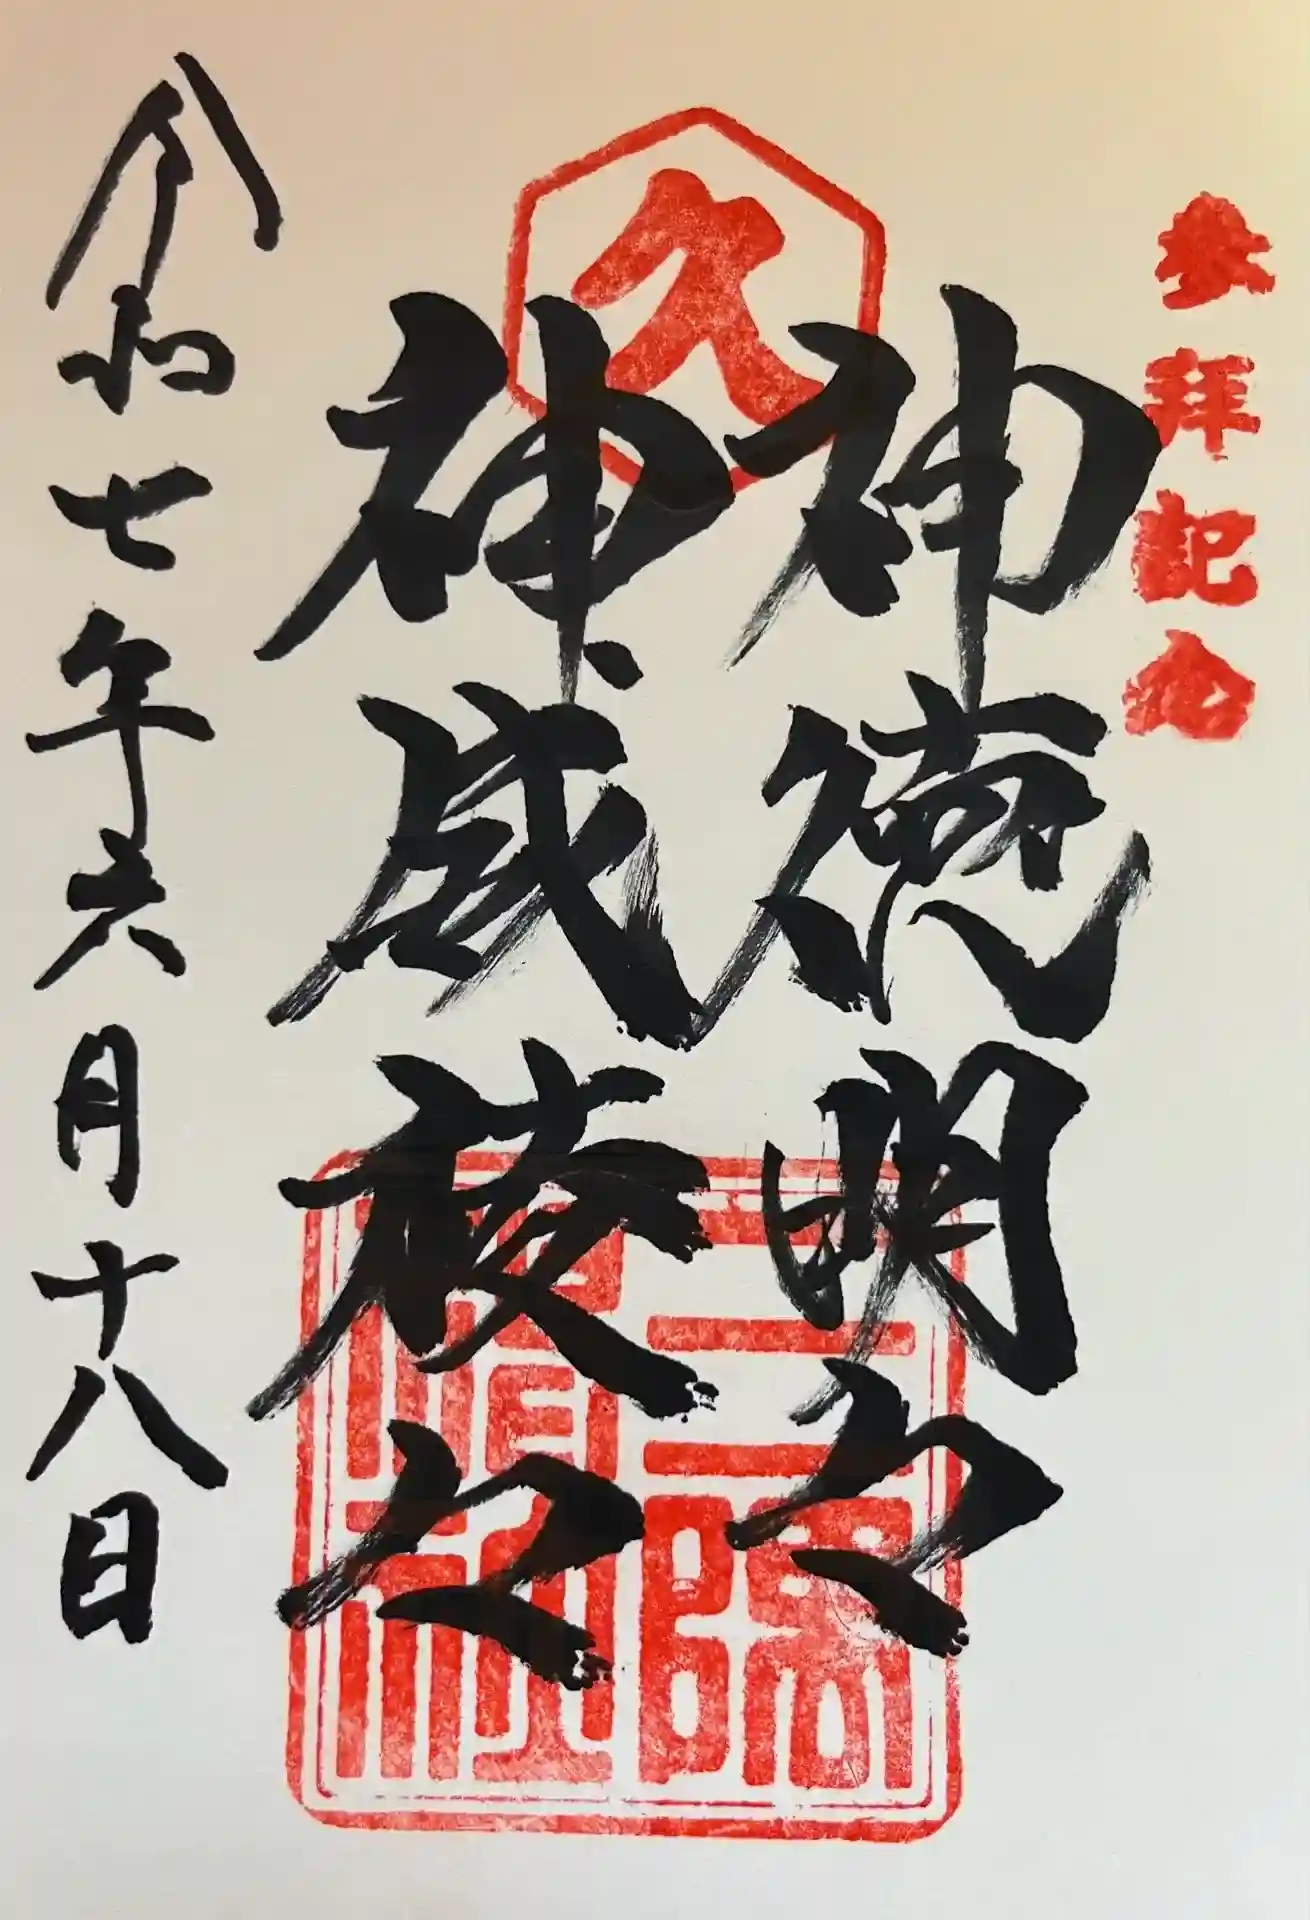 参拝記念
久
神徳明々
神威稜々
三隅
神社
令和七年六月十八日